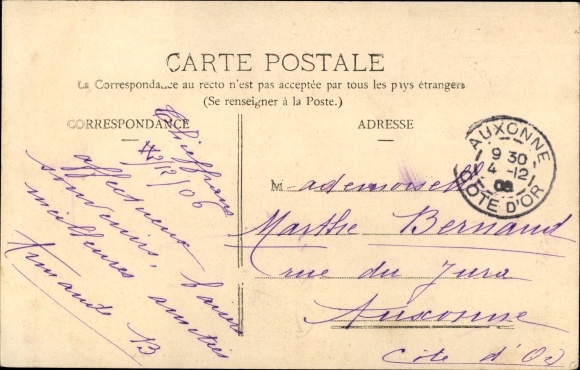 CARTE POSTALE
La Correspondance au recto n'est pas acceptée par tous les pays étrangers
(Se renseigner à la Poste.)
CORRESPONDANCE
ADRESSE
AUXONNE
9 30
4 -12
06
COTE D'OR
/12/06
affectueux
souvenirs, baisers
meilleures amitiés
Armande B
Mademoiselle
Marthe Bernard
rue du Jura
Auxonne
Côte d'Or